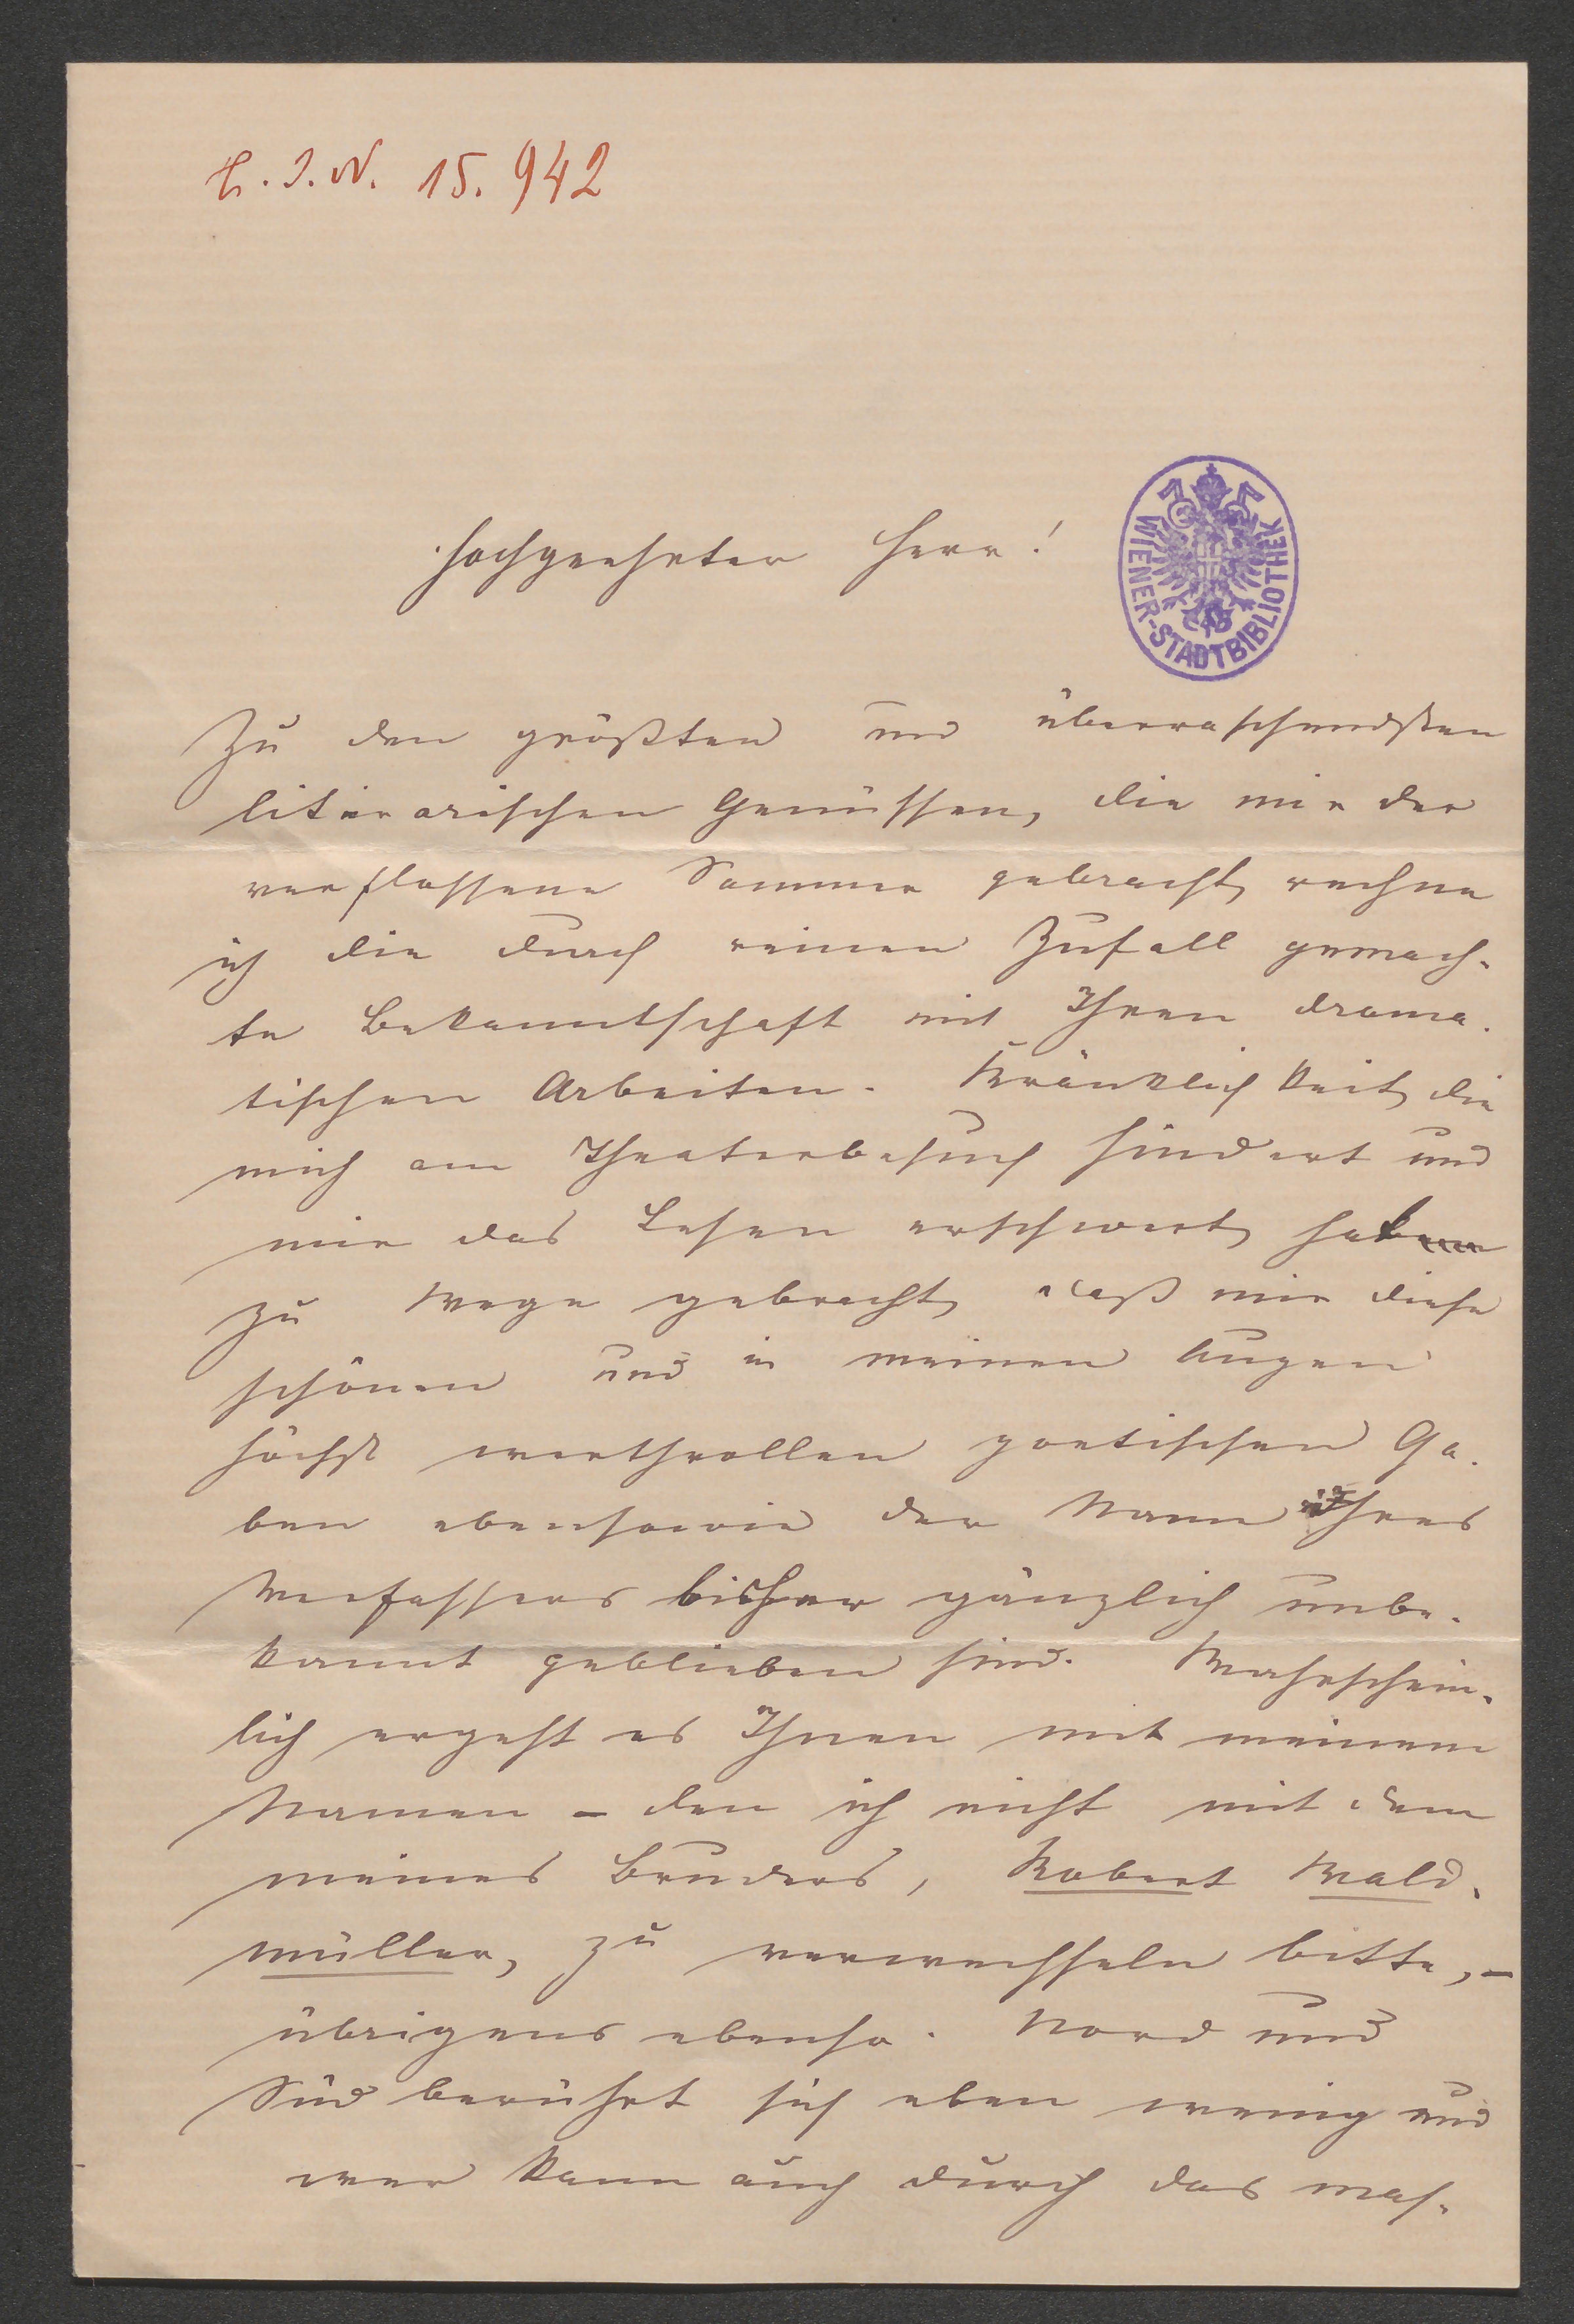 H. I. N. 15.942
Hochgeehrter Herr!
WIENER-STADTBIBLIOTHEK
Zu den größten und überraschendsten
literarischen Genüssen, die mir der
verflossene Sommer gebracht, rechne
ich die durch reinen Zufall gemach-
te Bekanntschaft mit Ihren drama-
tischen Arbeiten. Kränklichkeit, die
mich am Theaterbesuch hindert und
mir das Lesen erschwert, hat
zu Wege gebracht, daß mir diese
schönen und in meinen Augen
höchst werthvollen poetischen Ga-
ben ebensowie der Name Ihres
Verfassers bisher gänzlich unbe-
kannt geblieben sind. Wahrschein-
lich ergeht es Ihnen mit meinem
Namen – den ich nicht mit dem
meines Bruders, Robert Wald-
müller, zu verwechseln bitte, –
übrigens ebenso. Nord und
Süd berührt sich eben wenig und
wer kann auch durch das mas-